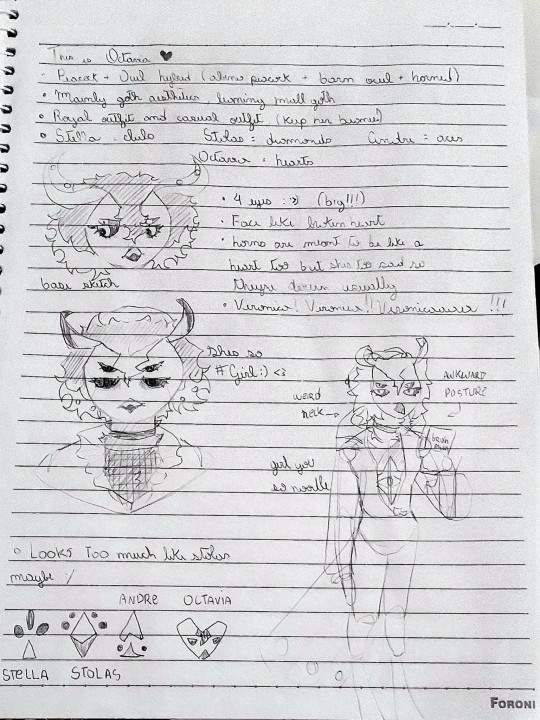 This is Octavia ♥
· Peacock + Owl hybrid (albino peacock + barn owl + horned)
• Mainly goth aesthetics, leaning mall goth
• Royal outfit and casual outfit (Keep her beanie)
• Stella = clubs Stolas = diamonds Andre = aces
Octavia = hearts
• 4 eyes :3) (big!!!)
• Face like broken heart
• horns are meant to be like a
heart too but shes too sad so
they're down usually
• Veronica! Veronica!! !!!
base sketch
shes so
#Girl :) <3
AWKWARD
POSTURE
WEIRD
NECK →
girl you
so
• Looks too much like stolas
maybe /
ANDRE OCTAVIA
STELLA STOLAS
FORONI